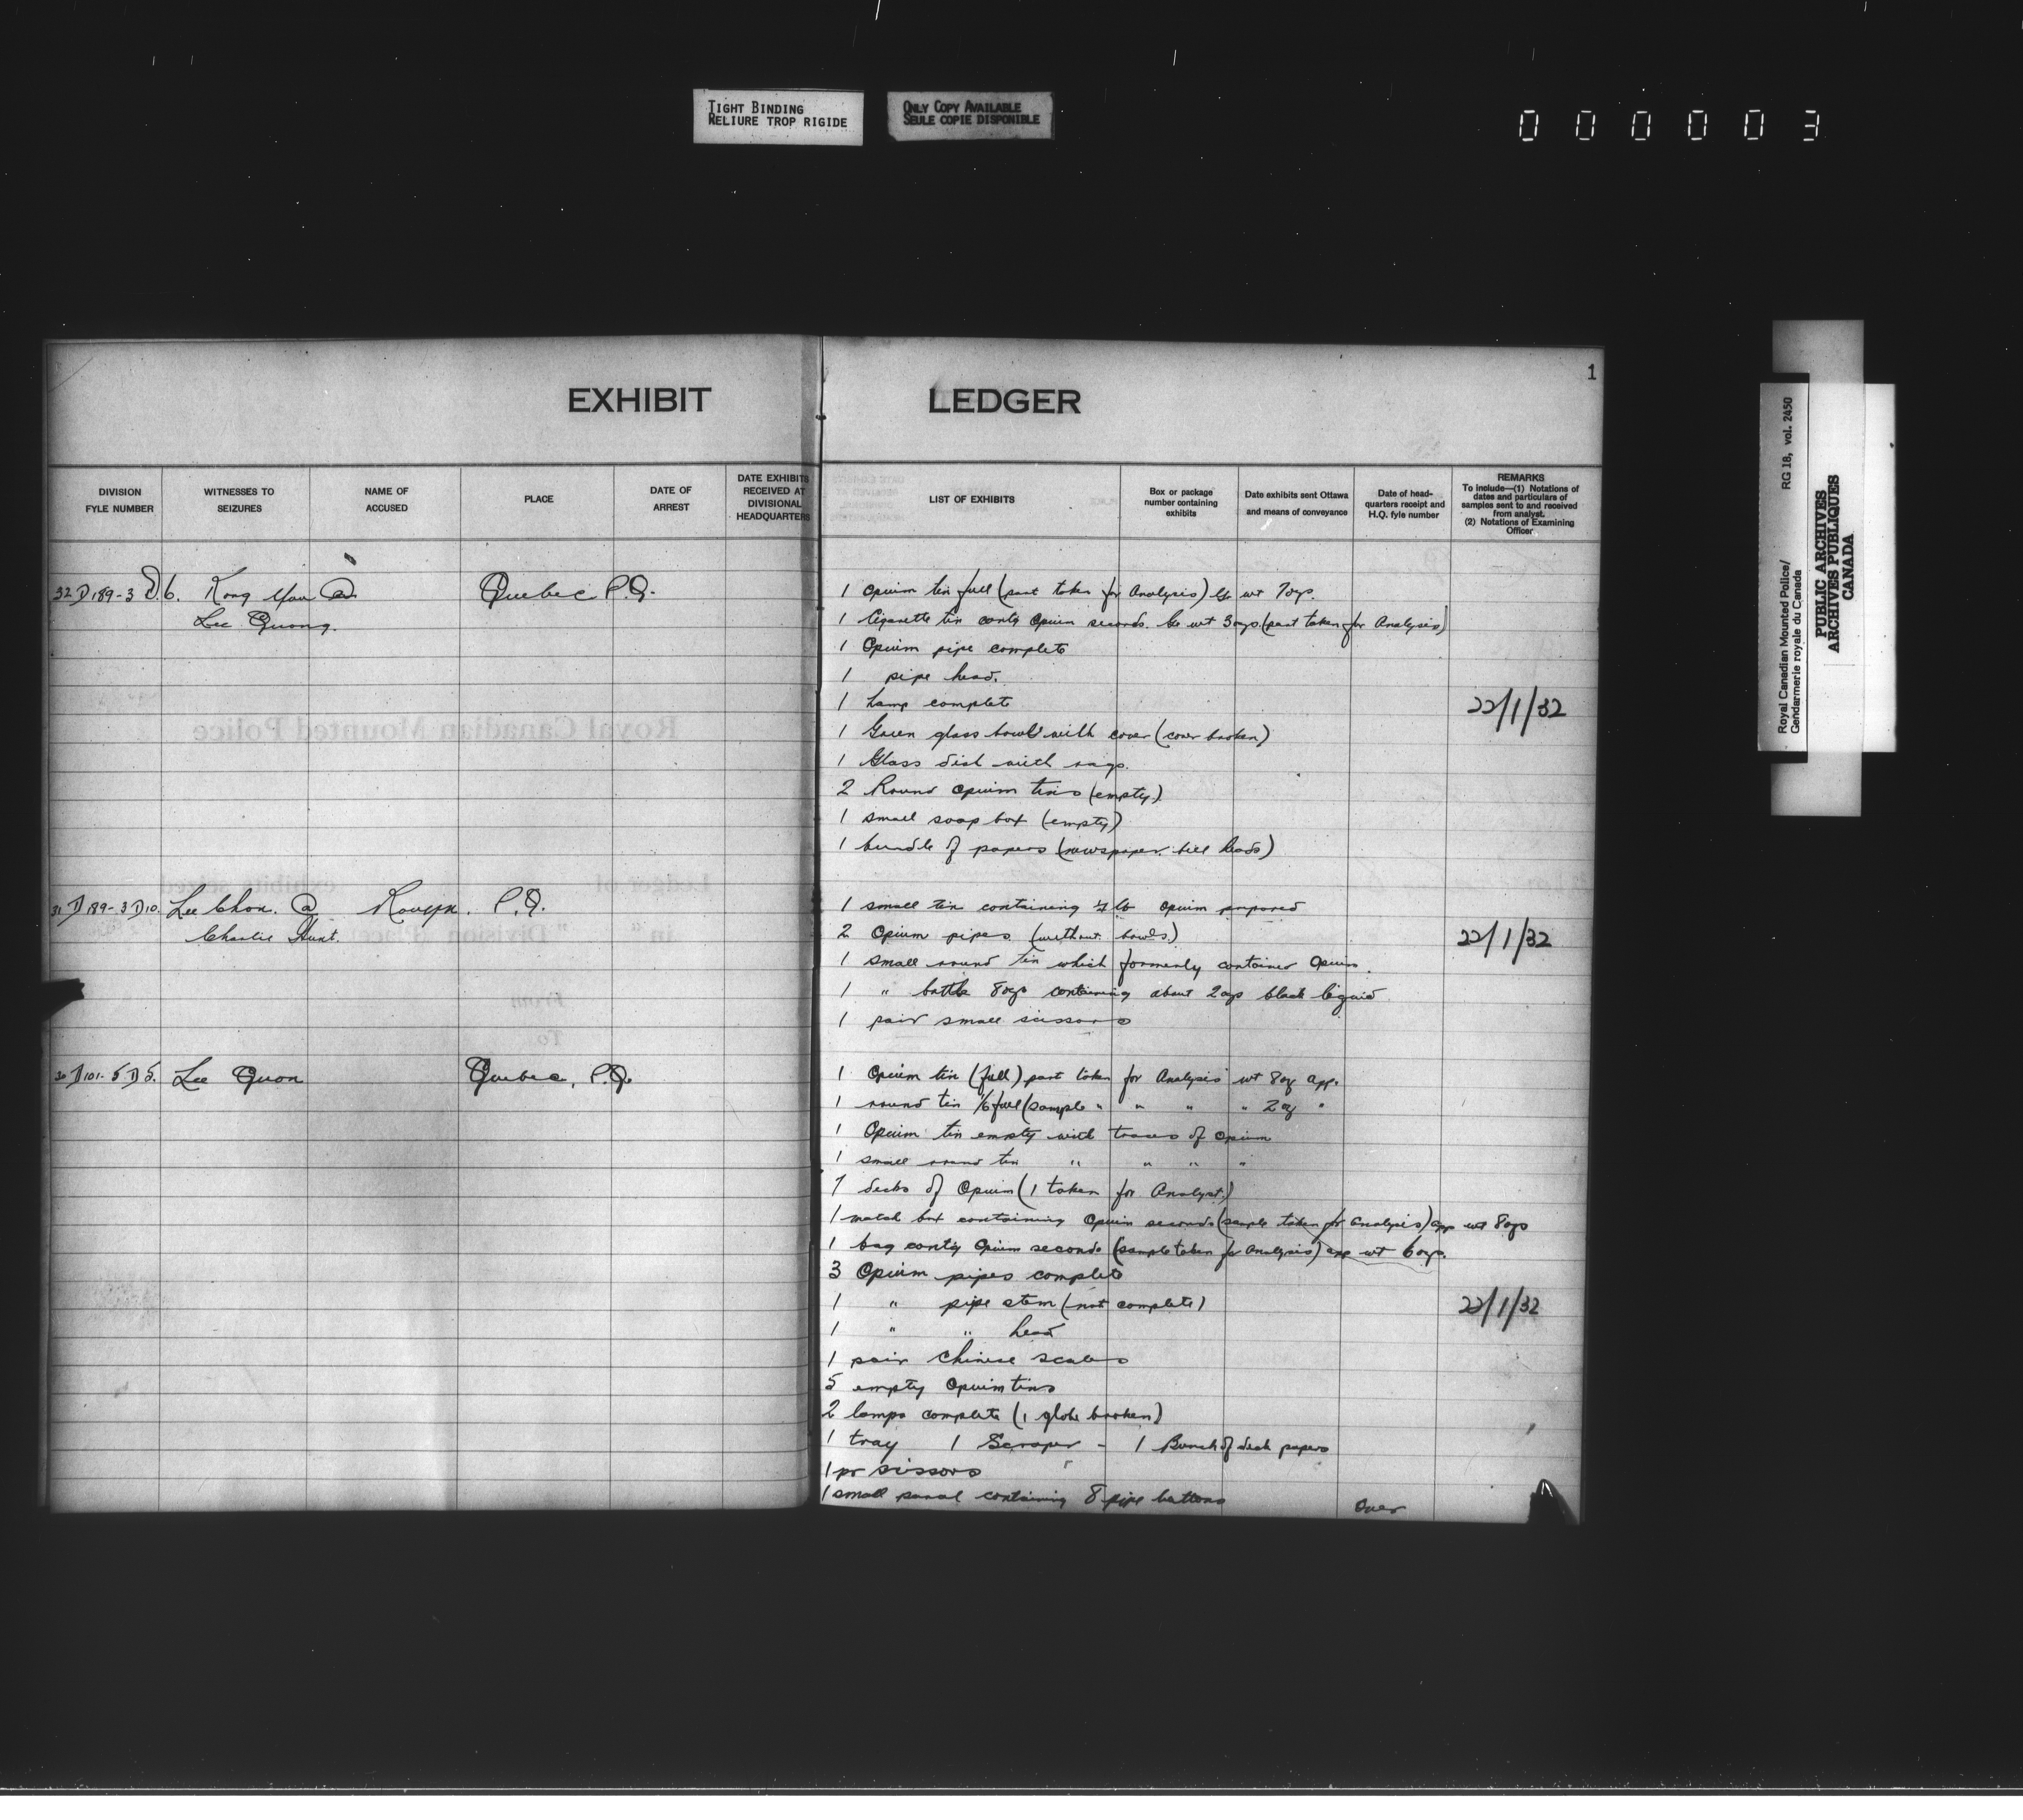 TIGHT BINDING
RELIURE TROP RIGIDE
ONLY COPY AVAILABLE
SEULE COPIE DISPONIBLE
000003
1
EXHIBIT LEDGER
DIVISION FYLE NUMBER
WITNESSES TO SEIZURES
NAME OF ACCUSED
PLACE
DATE OF ARREST
DATE EXHIBITS RECEIVED AT DIVISIONAL HEADQUARTERS
LIST OF EXHIBITS
Box or package number containing exhibits
Date exhibits sent Ottawa and means of conveyance
Date of head-quarters receipt and H.Q. fyle number
REMARKS
To include—(1) Notations of dates and particulars of samples sent to and received from analyst.
(2) Notations of Examining Officer
32 D 189-3 D.6. Kong Yau @ Quebec P.Q.
Lee Quong.
1 Opium tin full (part taken for Analysis) Gr wt 7ozs.
1 Cigarette tin contg Opium seconds. Gr wt 3ozs (part taken for Analysis)
1 Opium pipe complete
1 pipe head.
1 Lamp complete
22/1/32
1 Green glass bowl with cover (cover broken)
1 Glass dish with rags.
2 Round opium tins (empty)
1 small soap box (empty)
1 bundle of papers (newspaper. bill heads)
31 D 189-3 D 10. Lee Chon. @ Rouyn. P.Q.
Charlie Hunt.
1 small tin containing lb opium prepared
2 Opium pipes (without bowls)
22/1/32
1 small round tin which formerly contained Opium.
1 " bottle 8ozs containing about 2ozs black liquid
1 pair small scissors
30 D 101-5 D 5. Lee Quon Quebec, P.Q.
1 Opium tin (full) part taken for Analysis wt 8oz app.
1 round tin 1/6 full (sample " " " " 2oz "
1 Opium tin empty with traces of opium
1 small round tin " " " "
7 decks of Opium (1 taken for Analyst.)
1 match box containing Opium seconds (sample taken for analysis) app wt 8ozs
1 bag contg Opium seconds (sample taken for Analysis) app wt 6ozs.
3 Opium pipes complete
1 " pipe stem (not complete)
22/1/32
1 " " head
1 pair Chinese scales
5 empty Opium tins
2 lamps complete (1 globe broken)
1 tray 1 Scraper - 1 Bunch of deck papers
1 pr sissors
1 small parcel containing 8 pipe buttons
Over
Royal Canadian Mounted Police/ RG 18, vol. 2450
Gendarmerie royale du Canada
PUBLIC ARCHIVES
ARCHIVES PUBLIQUES
CANADA